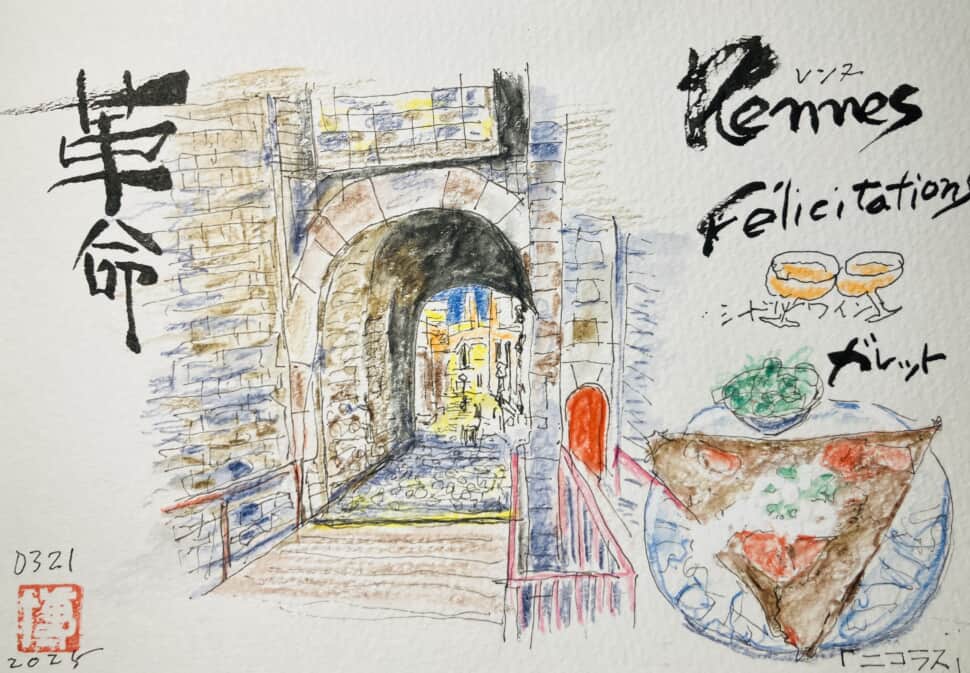 革命
Rennes
レンヌ
Félicitations
シードルワイン
ガレット
「ニコラス」
0321
2025